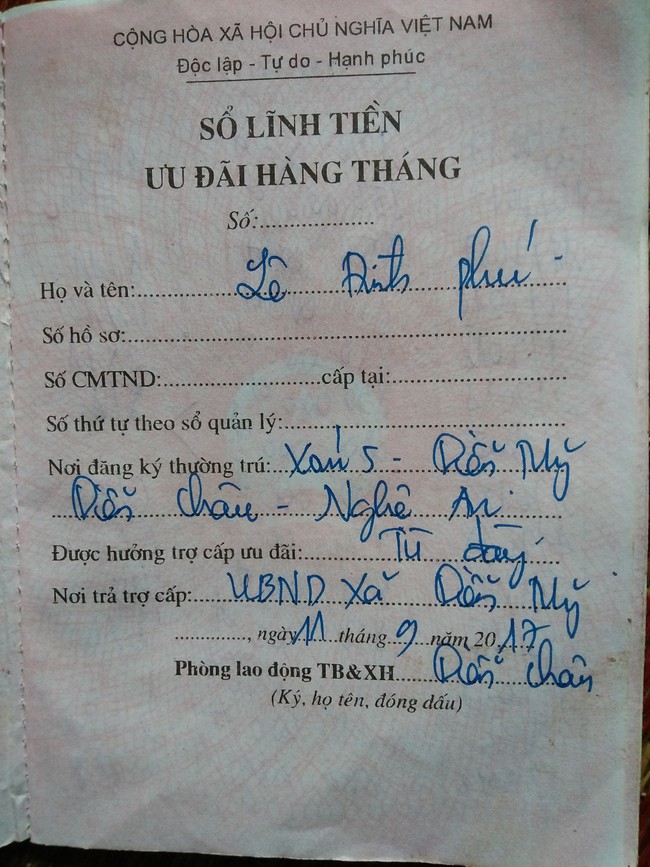 CỘNG HÒA XÃ HỘI CHỦ NGHĨA VIỆT NAM
Độc lập - Tự do - Hạnh phúc
SỔ LĨNH TIỀN
ƯU ĐÃI HÀNG THÁNG
Số:....................
Họ và tên: Lê Đình phú
Số hồ sơ:....................
Số CMTND:....................cấp tại:....................
Số thứ tự theo sổ quản lý:....................
Nơi đăng ký thường trú: Xóm 5 - Diễn Mỹ
Diễn Châu - Nghệ An
Được hưởng trợ cấp ưu đãi: Tù đày
Nơi trả trợ cấp: UBND Xã Diễn Mỹ
...................., ngày 11 tháng 9 năm 2017
Phòng lao động TB&XH Diễn Châu
(Ký, họ tên, đóng dấu)